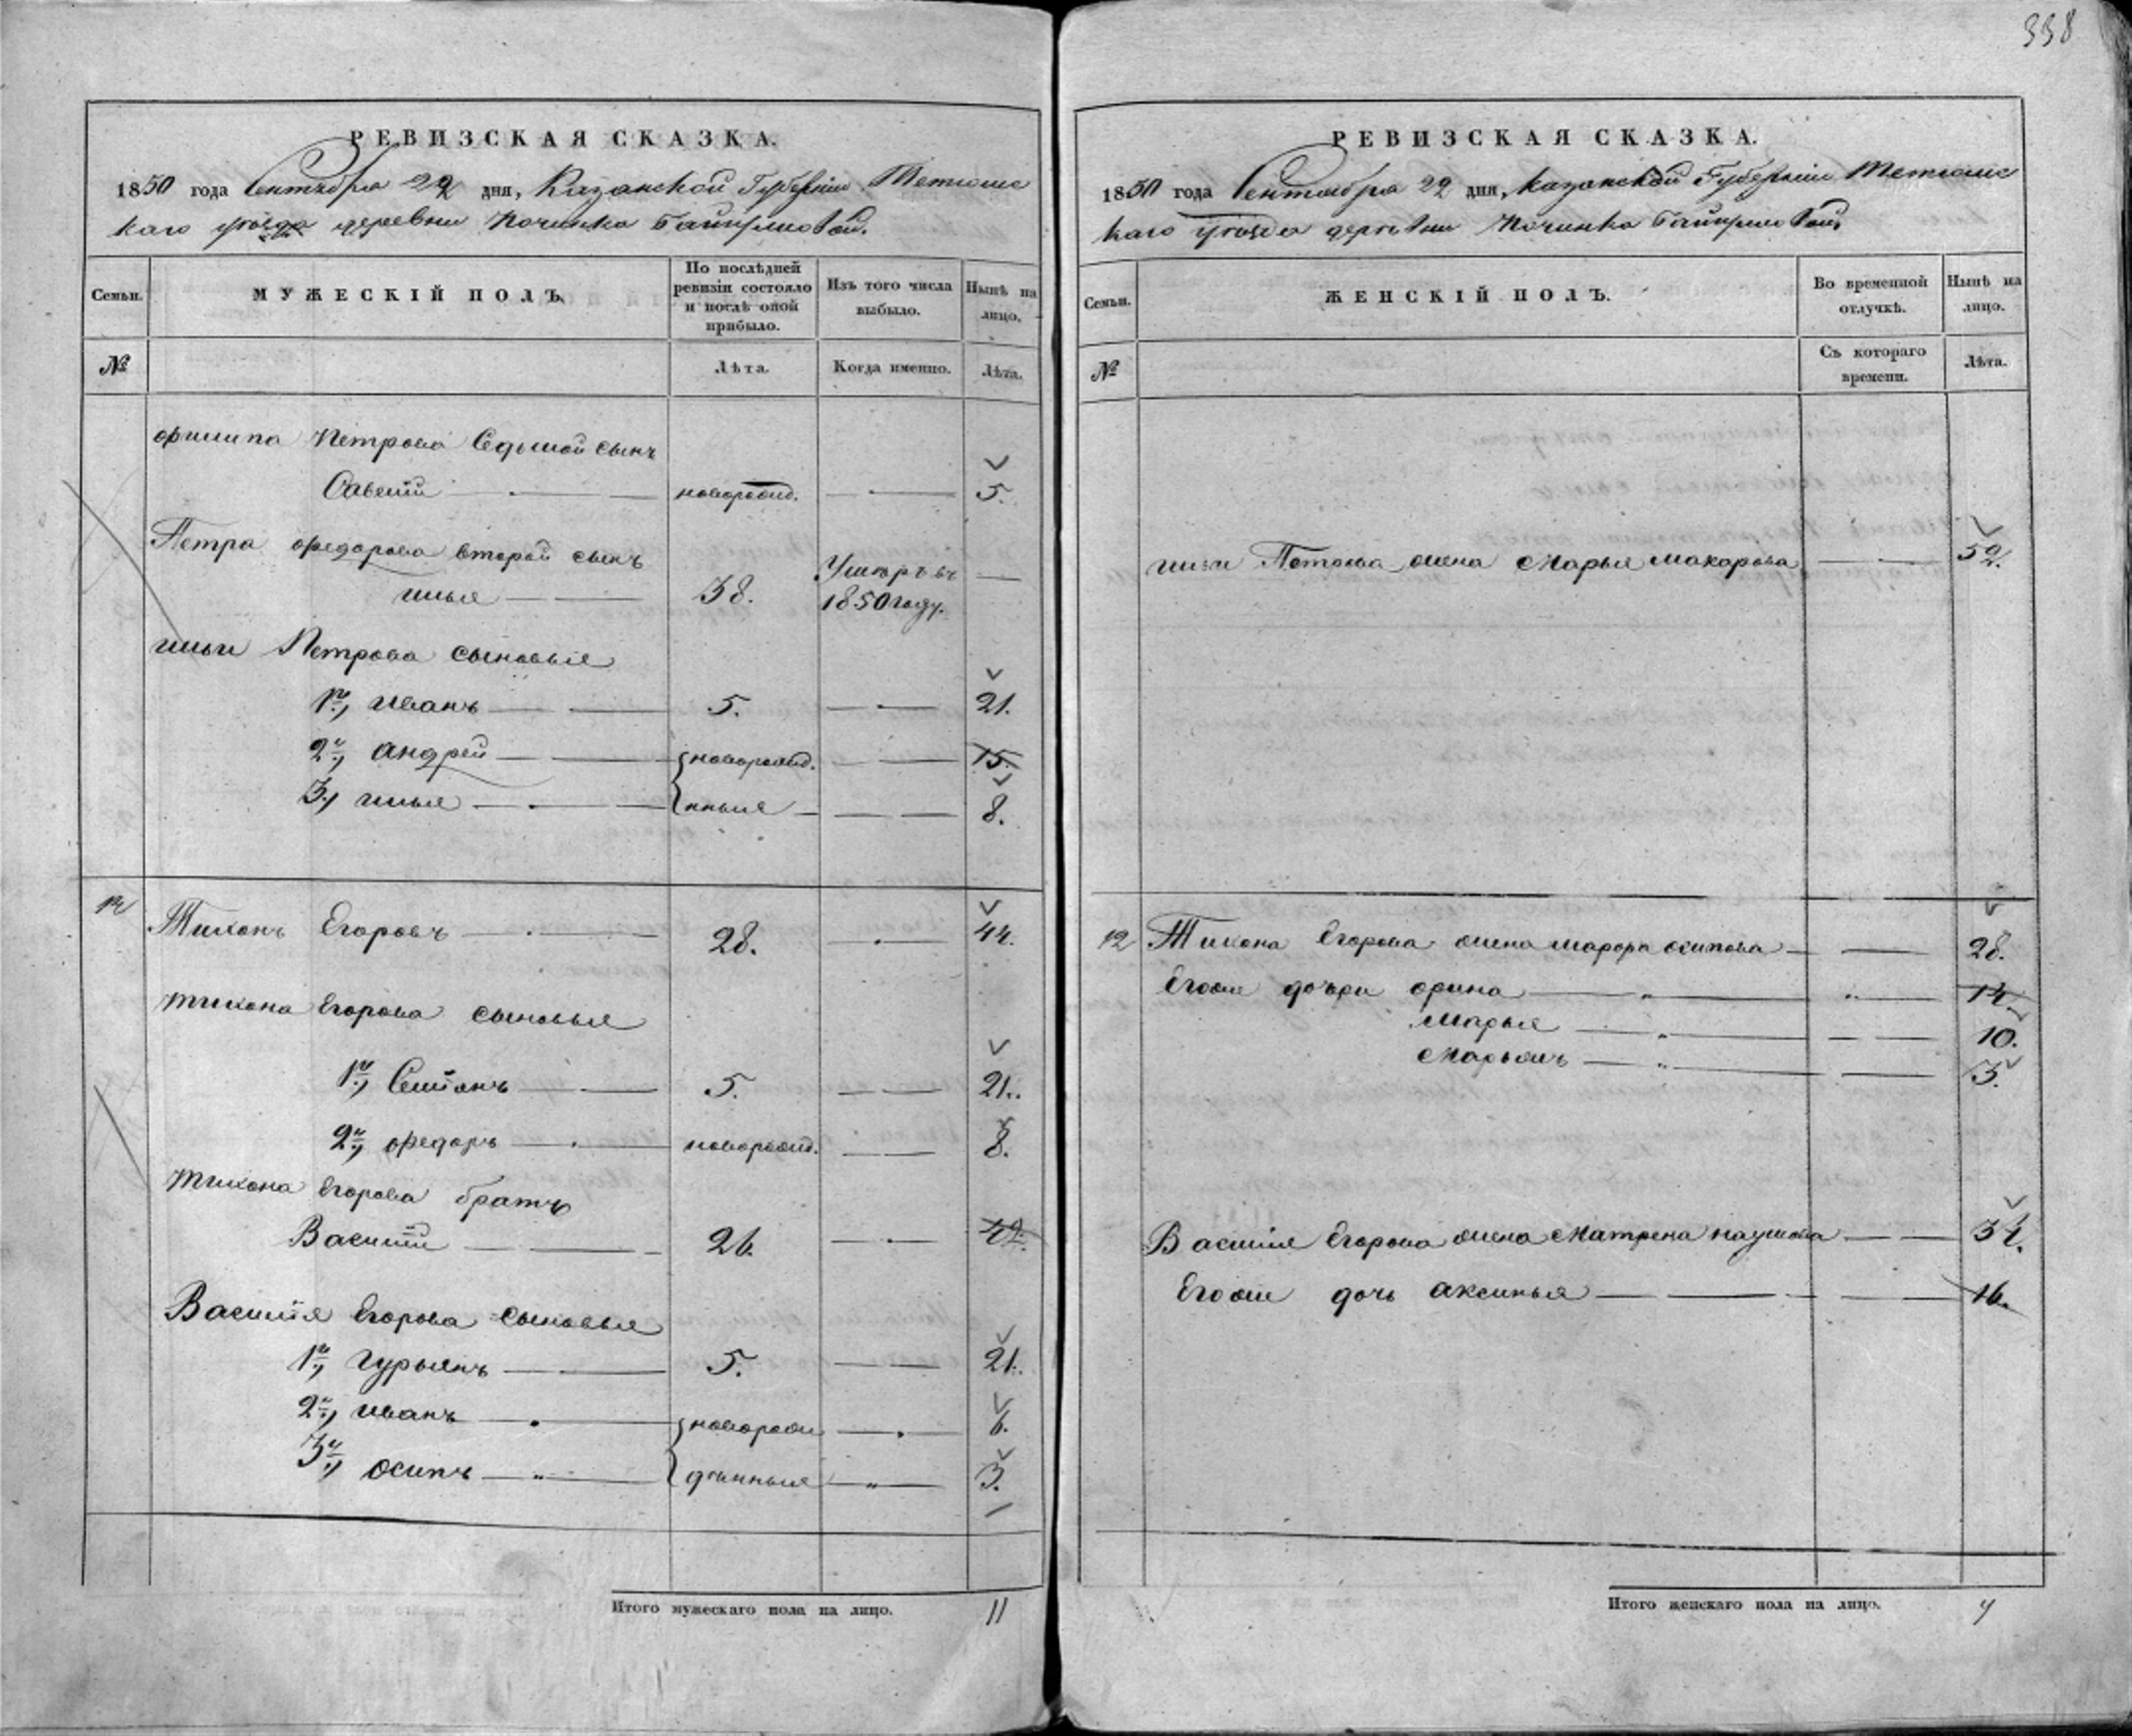 338
РЕВИЗСКАЯ СКАЗКА.
1850 года Сентября 22 дня, Казанской Губерніи Тетюшс
каго уѣзда деревни Починка
Семьи.
МУЖЕСКІЙ ПОЛЪ
По послѣдней ревизіи состояло и послѣ оной прибыло.
Изъ того числа выбыло.
Нынѣ на лицо.
№
Лѣта.
Когда именно.
Лѣта.
Филипа Петрова Седьмой сынъ
Савелій новорожд. 5.
Петра Федорова второй сынъ
Илья 38. Умѣръ въ 1850 году.
Ильи Петрова сыновья
1й Иванъ 5. 21.
2й Андрей новорожд. 15.
3й Илья нныя 8.
12 Тихонъ Егоровъ 28. 44.
Тихона Егорова сыновья
1й Семіонъ 5. 21.
2й Федоръ новорожд. 8.
Тихона Егорова братъ
Василій 26. 42.
Василія Егорова сыновья
1й Гурьянъ 5. 21.
2й Иванъ новорож 6.
3й Осипъ денныя 3.
Итого мужескаго пола на лицо. 11
РЕВИЗСКАЯ СКАЗКА.
1850 года Сентября 22 дня, Казанской Губерніи Тетюшс
каго уѣзда деревни Починка
Семьи.
ЖЕНСКІЙ ПОЛЪ.
Во временной отлучкѣ.
Нынѣ на лицо.
№
Съ котораго времени.
Лѣта.
Ильи Петрова жена Марья Макарова 52.
12 Тихона Егорова жена Марфа Осипова 28.
Егоже дочери Орина 14.
Марья 10.
5.
Василія Егорова жена Матрена Наумова 34.
Егоже дочь Аксинья 16.
Итого женскаго пола на лицо.